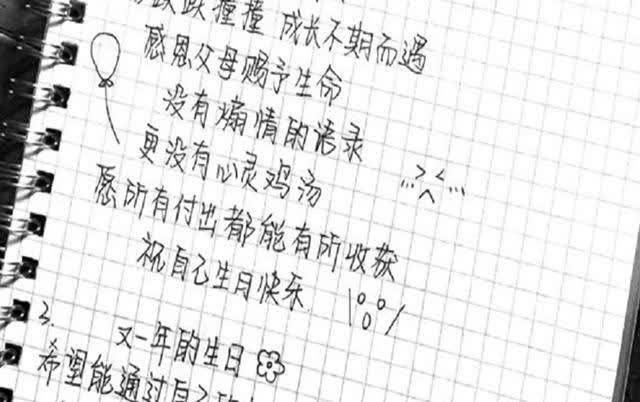 跌跌撞撞 成长不期而遇
感恩父母赐予生命
没有煽情的语录
更没有心灵鸡汤
愿所有付出都能有所收获
祝自己生日快乐
3.
又一年的生日
希望能通过自己